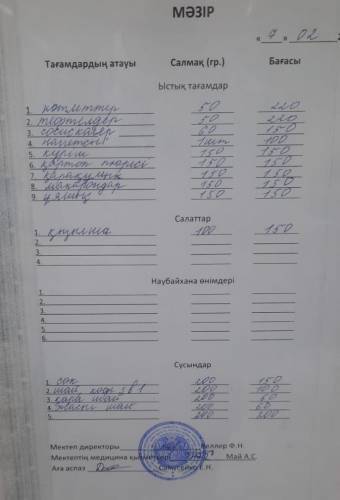 МӘЗІР
« 7 » 02
Тағамдардың атауы Салмақ (гр.) Бағасы
Ыстық тағамдар
1. котлеттер 50 220
2. тефтелдер 50 220
3. сосискалер 60 150
4. наггетсы 1 шт 100
5. күріш 150 150
6. картоп пюресі 150 150
7. қарақұмық 150 150
8. макарондар 150 150
9. 150 150
Салаттар
1. қызылша 100 150
2.
3.
4.
Наубайхана өнімдері
1.
2.
3.
4.
5.
6.
Сусындар
1. сок 200 150
2. шай, кофе 3 в 1 200 100
3. қара шай 200 60
4. шай 200 60
5. 200 200
Мектеп директоры Келлер Ф.Н.
Мектептің медицина қызметкері Май А.С.
Аға аспаз Е.Н.